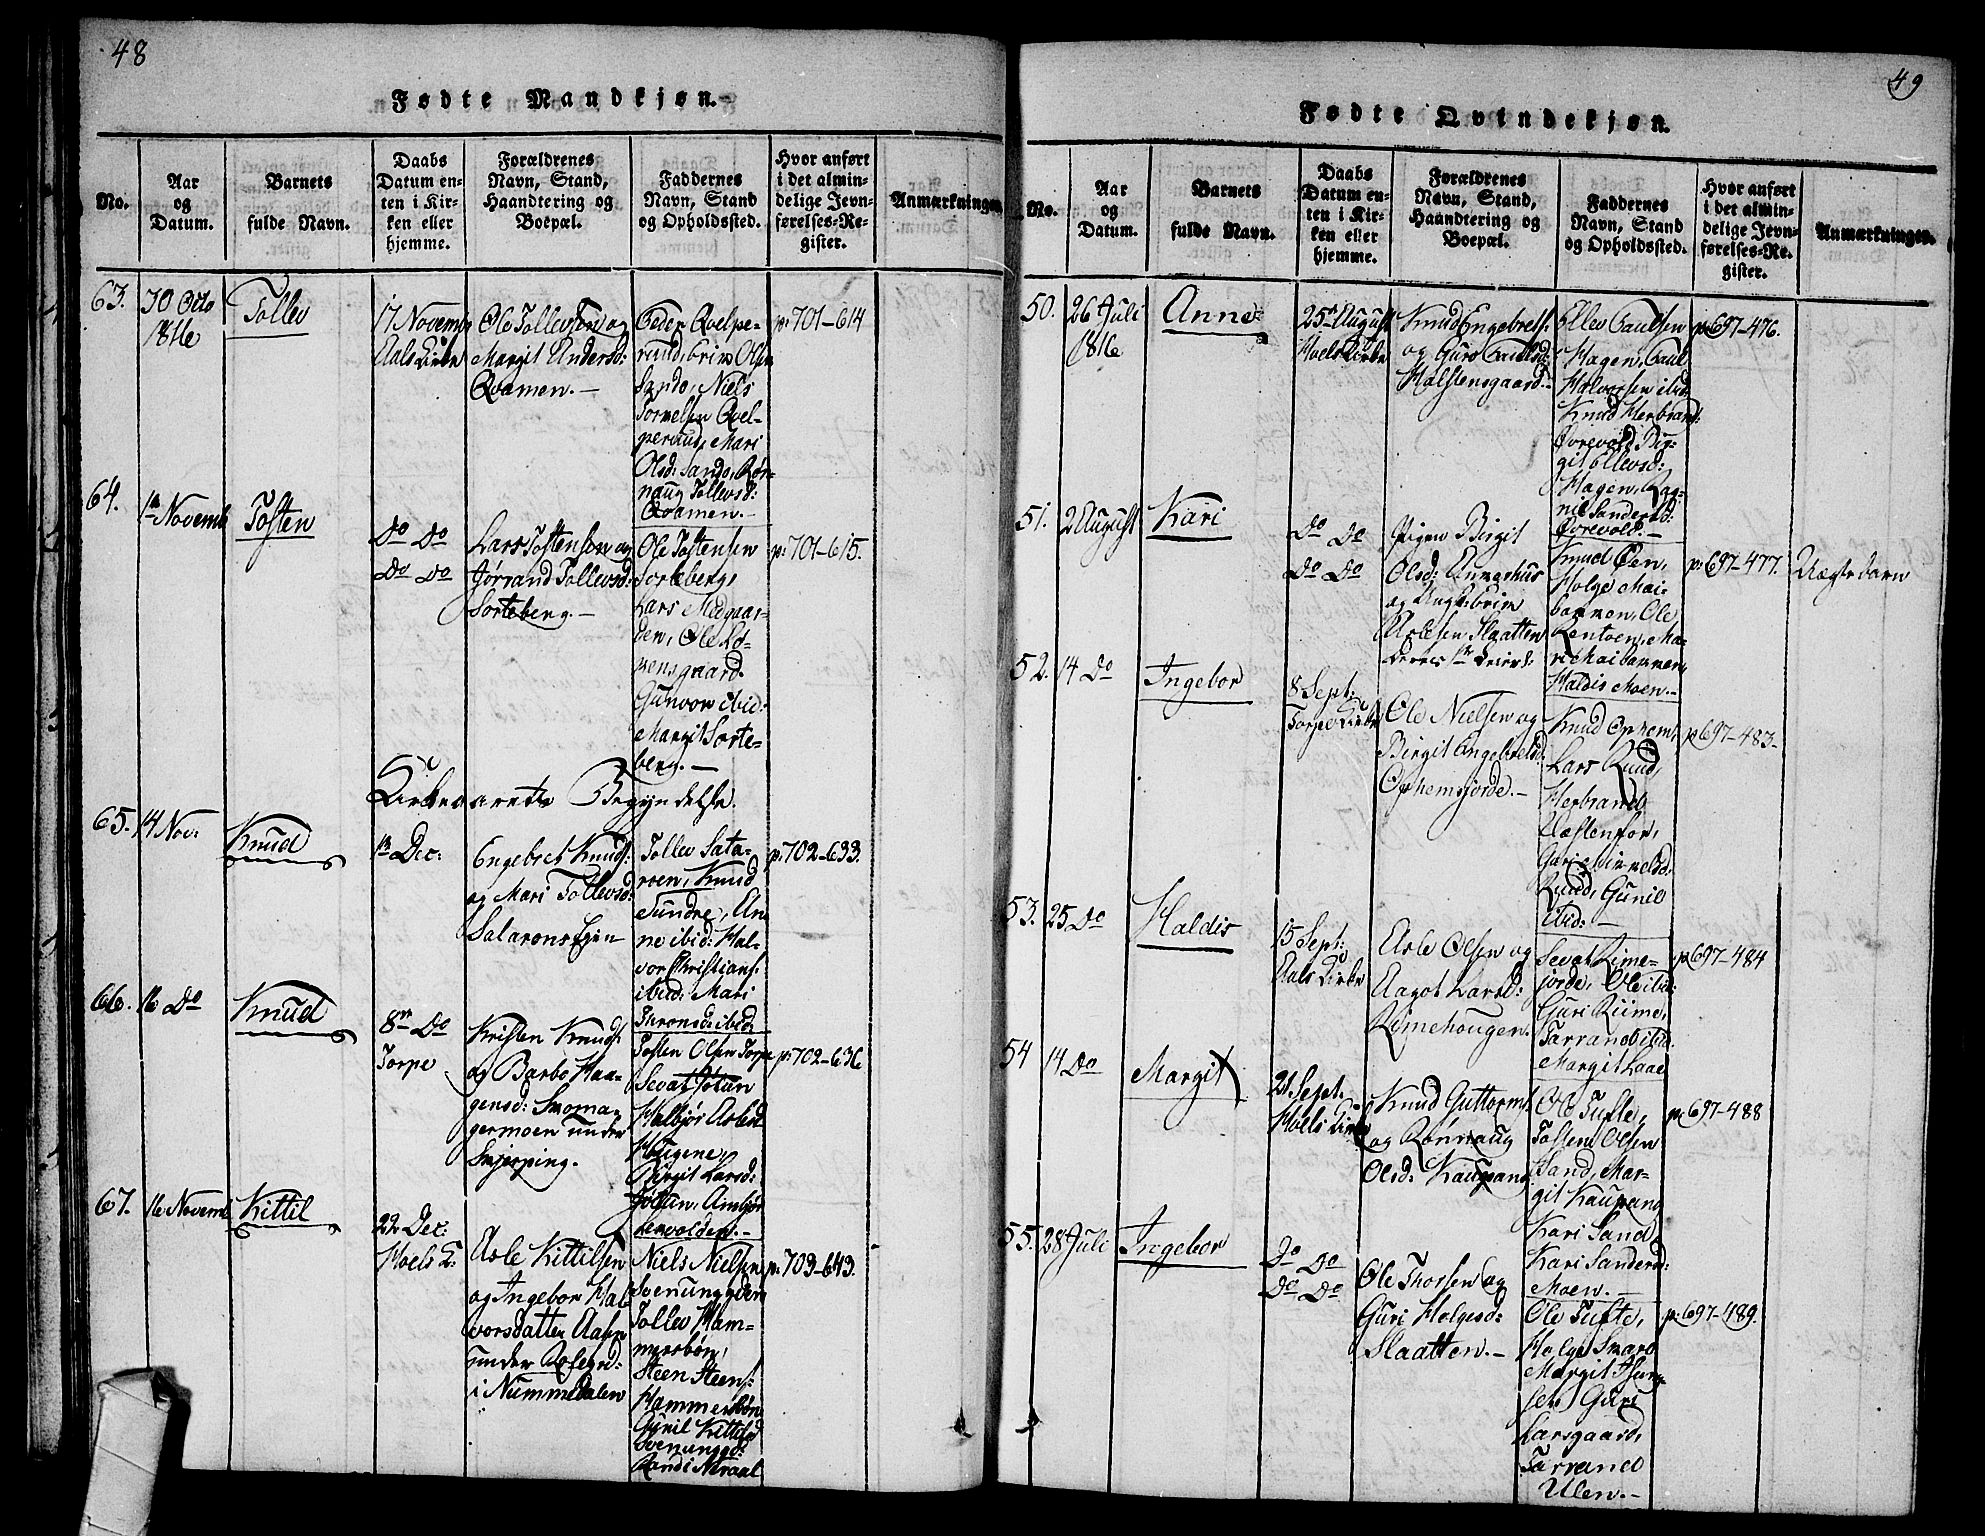 48
Fødte Mandkjøn.
No.
Aar
og
Datum.
Barnets
fulde Navn.
Daabs
Datum en-
ten i Kir-
ken eller
hjemme.
Forældrenes
Navn, Stand,
Haandtering og
Boepæl.
Faddernes
Navn, Stand
og Opholdssted.
Hvor anført
i det almin-
delige Jevn-
førelses-Re-
gister.
Anmærkninger.
63.
30 Octo
1816
Tollev
17 Novemb
Aals Kirke
Ole Tollevsen og
Margit Endersd:
Qvamen.-
Peder Qvelpe-
rud,
Sando, Niels
Qvel-
perud, Mari
Olsd: Sando, Røn-
naug Tollevsd:
Qvamen.-
p: 701-614
64.
1te Novemb
Tosten
Do Do
Do Do
Lars Tostensen og
Jørrand Tollevsd:
Sorteberg.-
Ole Tostensen
Sorteberg,
Lars
den, Ole
pensgaard
Gunvor ibid:
Margit Sorte-
berg.-
p: 701-615.
Kirkeaarets Begyndelse.
65.
14 Nov:
Knud
1te Dec:
Engebret Knuds:
og Mari Tollevsd:
Tollev Sata-
roen, Knud
Sundre, An-
ne ibid: Hal-
vor Christians:
ibid: Mari
ibid
p: 702-633.
66.
16 Do
Knud
8de Do
Torpe
Kristen Knuds:
og Barbo Haa-
gensd:
germoen under
Tosten Olsen Torpe
Sevat Jotun
Halbjør Aslesd
Haugene,
Birgit Larsd:
Jotun,
p: 702-636
67.
16 Novemb
Kittil
22 Dec:
Hoels K:
Asle Kittilsen
og Ingebor Hal-
vorsdatter
under
i Nummedalen
Niels Nielsen
Tollev Ham-
mersbøn,
Steen Steens:
Hammersbøn
Gunil Kittilsd
Randi
p: 703-643.
49
Fødte Qvindekjøn.
No.
Aar
og
Datum.
Barnets
fulde Navn.
Daabs
Datum en-
ten i Kir-
ken eller
hjemme.
Forældrenes
Navn, Stand,
Haandtering og
Boepæl.
Faddernes
Navn, Stand
og Opholdssted.
Hvor anført
i det almin-
delige Jevn-
førelses-Re-
gister.
Anmærkninger.
50.
26 Juli
1816
Anne
25de August
Hoels Kirke
Knud Engebrets:
og Guro Paulsd:
Halstensgaard.-
Ellev Paulsen
Hagen, Paul
Halvorsen ibid
Knud Herbrands:
Øvrevold, Bir-
git Ellevsd:
Hagen, Rag-
nil Sandersd:
Øvrevold.-
p: 697-476.
51.
2 August
Kari
Do Do
Do Do
Pigen Birgit
Olsd:
og Ungk:
Aslesen Slaatten
Deres 1te Leierm:
Knud Øen,
Holge Mai-
barmen, Ole
Rentoen, Ma-
ri Maibarmen,
Haldis Moen.-
p: 697-477.
Uægte barn
52.
14 Do
Ingebor
8 Sept:
Torpe Kirke
Ole Nielsen og
Birgit Engebretsd:
Ophemsjorde.-
Knud Ophem,
Lars Ruud,
Herbrand
Guri
Ruud, Gunild
ibid:-
p: 697-483-
53.
25 Do
Haldis
15 Sept:
Aals Kirke
Asle Olsen og
Aagot Larsd:
Rimehougen.
Sevat Rime-
jorde, Ole ibid:
Guri Rime,
Tarrand ibid:
Margit Laae
p: 697-484
54
14 Do
Margit
21 Sept:
Hoels Kirke
Knud Guttorms:
og Rønnaug
Olsd: Kaupang
Ole Tufte,
Tosten Olsen
Sand, Mar-
git Kaupang
Kari Sand,
Kari Sandersd:
Moen.-
p: 697-488
55.
28 Juli
Ingebor
Do Do
Do Do
Ole Thorsen og
Guri Holgesd:
Slaatten.-
Ole Tufte,
Holge
Margit
Guri
Larsgaard,
Tarrand
Ulen.-
p: 697-489.